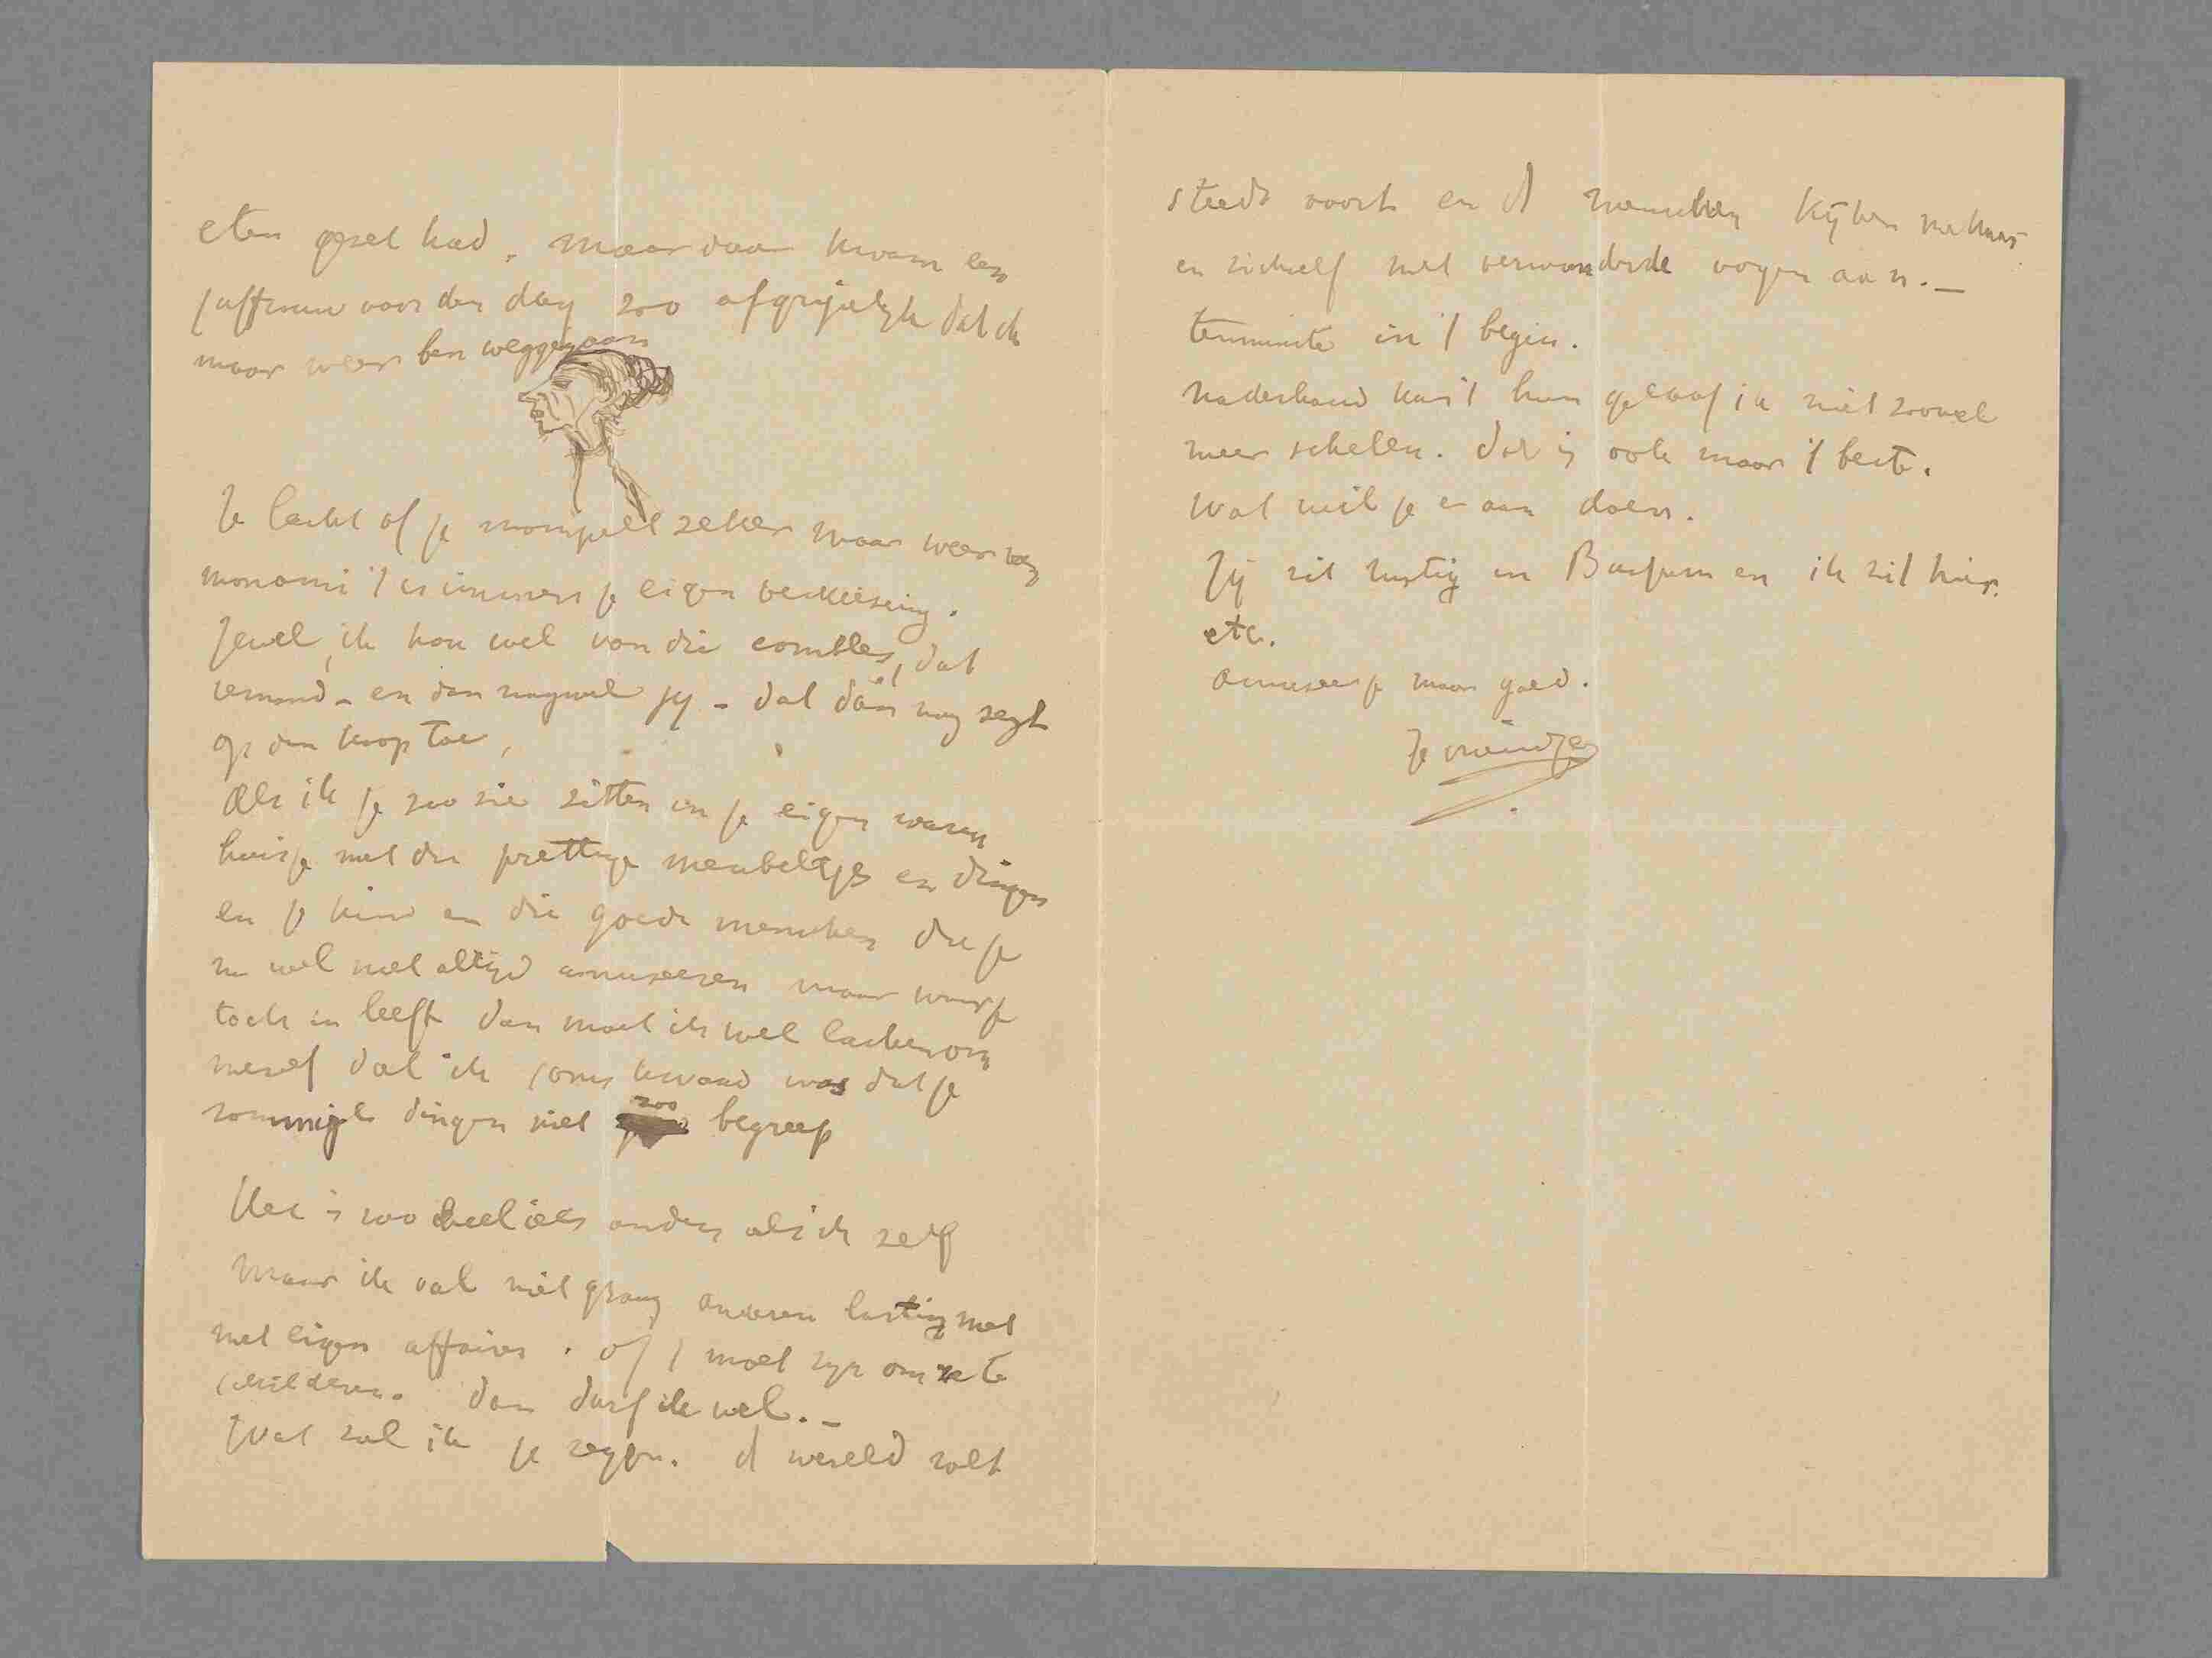 eten gezet had. maar daar kwam een
juffrouw voor den dag zoo afgrijselijk dat ik
maar weer ben weggegaan
Je lacht of je mompelt zeker maar weer van
monomi 't is immers je eigen verkiezing.
Jewel, ik hou wel van die combles, dat
iemand - en dan nogwel jy - dat dàn nog zegt
op den koop toe,
Als ik je zoo zie zitten in je eigen waren
huisje met die prettige meubeltjes en dingen
en je kind en die goede menschen die je
nu wel niet altijd amuseeren maar waar je
toch in leeft dan moet ik wel lachen om
mezelf dat ik soms kwaad was dat je
sommige dingen niet zoo begreep
Het is zoo heel iets anders als ik zelf
Maar ik val niet graag anderen lastig met
met eigen affaires. of 't moet zijn om ze te
schilderen. dan durf ik wel. -
Wat zal ik je zeggen. d wereld rolt
steeds voort en d menschen kijken mekaar
en zichzelf met verwonderde oogen aan. -
tenminste in 't begin.
naderhand kan 't hun geloof ik niet zooveel
meer schelen. dat is ook maar 't beste.
Wat wil je er aan doen.
Jij zit rustig in Bussum en ik zit hier.
etc.
Amuseer je maar goed.
Je vriendje